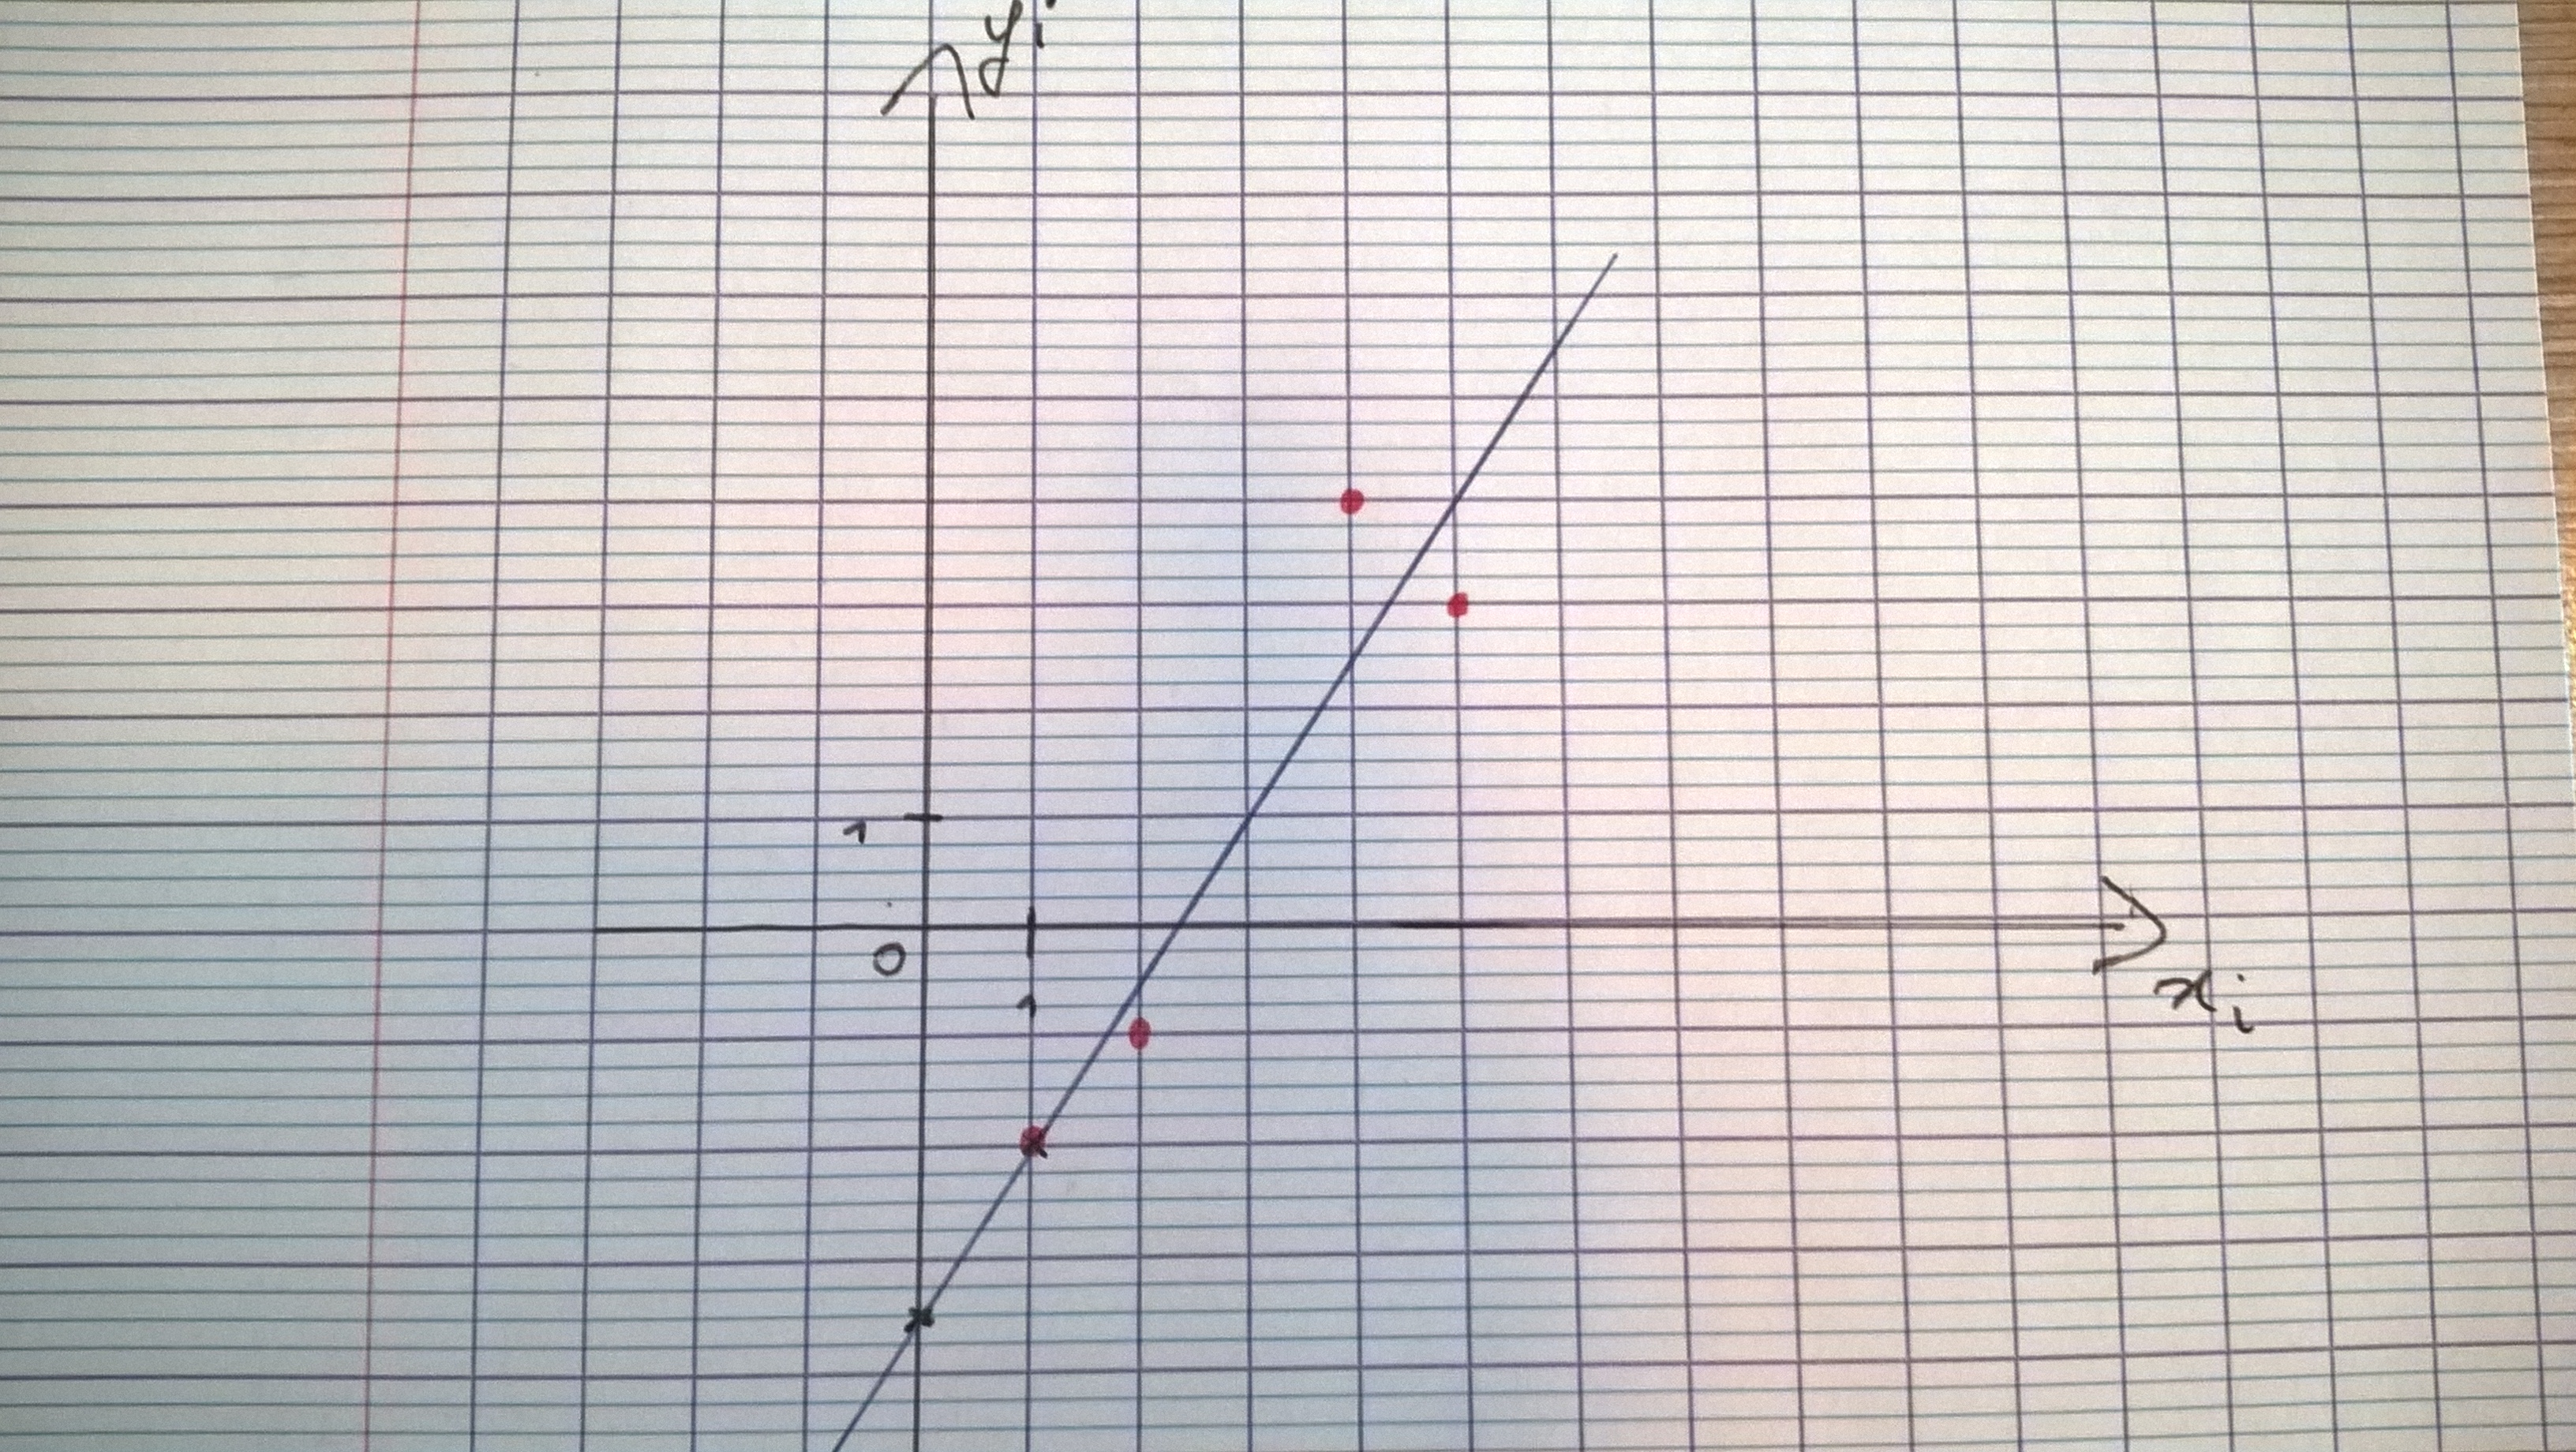 yi
1
0
1
xi